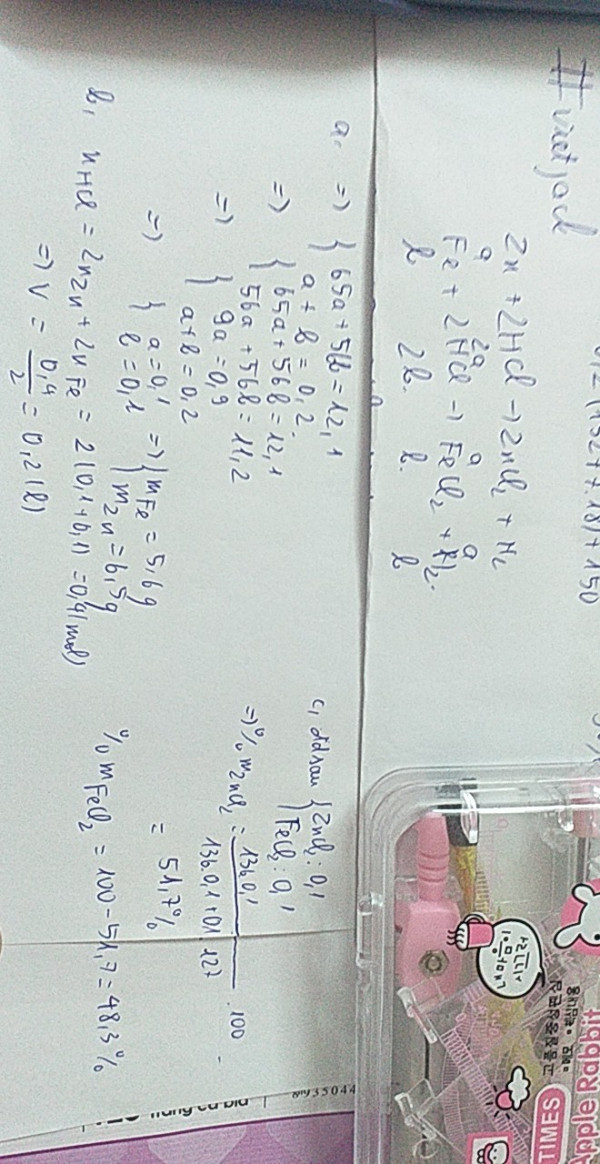 #vietjack
Zn + 2HCl → ZnCl₂ + H₂
a 2a a a
Fe + 2HCl → FeCl₂ + H₂.
b 2b. b. b
a, => { 65a + 56b = 12,1
a + b = 0,2.
=> { 65a + 56b = 12,1
56a + 56b = 11,2
=> { 9a = 0,9
a + b = 0,2
=> { a = 0,1 => { mFe = 5,6g
b = 0,1 mZn = 6,5g
b, nHCl = 2nZn + 2nFe = 2(0,1+0,1) = 0,4(mol)
=> V = 0,4/2 = 0,2(l)
c, dd sau { ZnCl₂: 0,1
FeCl₂: 0,1
=> % mZnCl₂ = 136.0,1 / 136.0,1+0,1.127 . 100
= 51,7%
% mFeCl₂ = 100 - 51,7 = 48,3%
Apple Rabbit
TIMES
93504